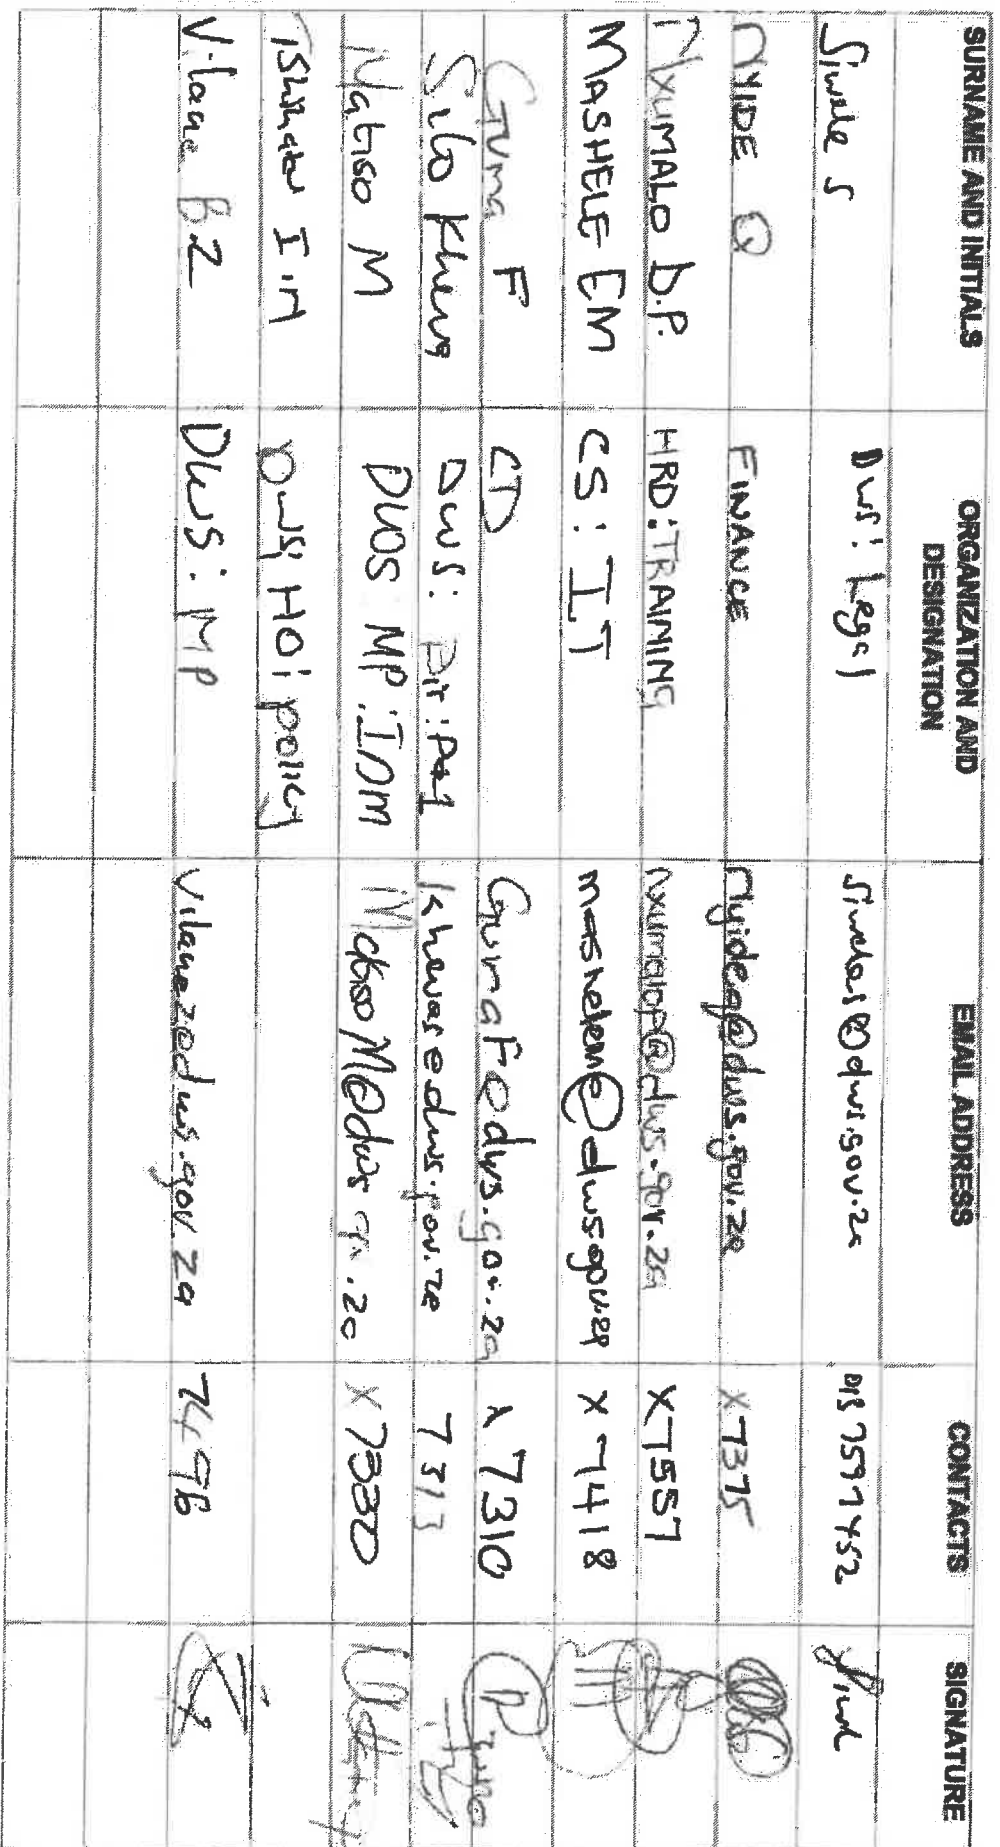 SURNAME AND INITIALS ORGANIZATION AND DESIGNATION EMAIL ADDRESS CONTACTS SIGNATURE
Siwele S DWS: Legal Siweles@dws.gov.za 7597452
NYIDE Q FINANCE Nyideq@dws.gov.za X7375
NXUMALO D.P. HRD: TRAINING nxumalop@dws.gov.za X7557
MASHELE EM CS: I.T masheleme@dws.gov.za X 7418
Guma F CD GumaF@dws.gov.za X 7310
Silo Khewa DWS: Dir: khewas@dws.gov.za 7313
Matiso M DWS MP: IDM MatisoM@dws.gov.za X 7380
I.M DWS; HO; policy
Vilane BZ DWS: MP Vilanez@dws.gov.za 7498